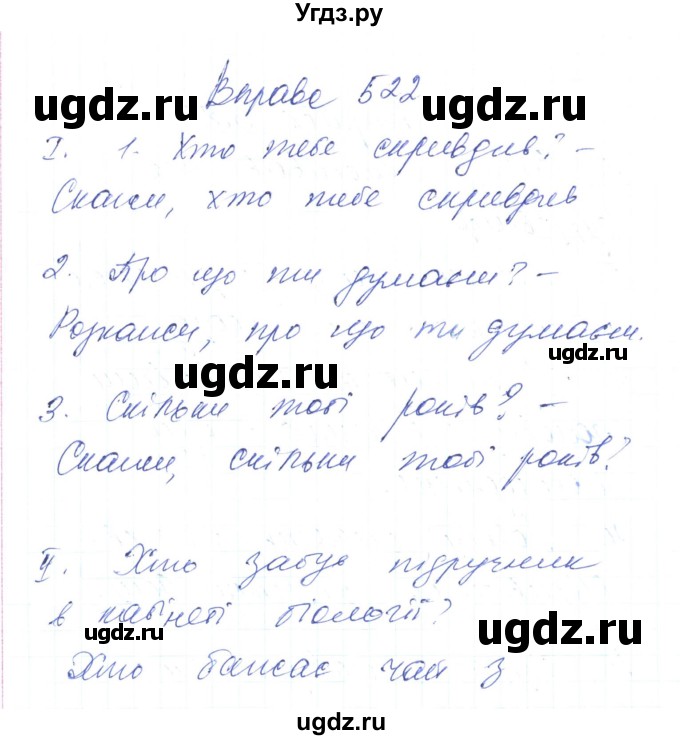 Угдз.ру
ugdz.ru ugdz.ru
Вправа 522
I. 1. Хто тебе скривдив? –
Скажи, хто тебе скривдив
2. Про що ти думаєш? –
Розкажи, про що ти думаєш.
ugdz.ru
ugdz.ru
3. Скільки тобі років? –
Скажи, скільки тобі років?
II. Хто забув підручник
в кабінеті біології?
ugdz.ru ugdz.ru
Хто бажає чай з
ugdz.ru